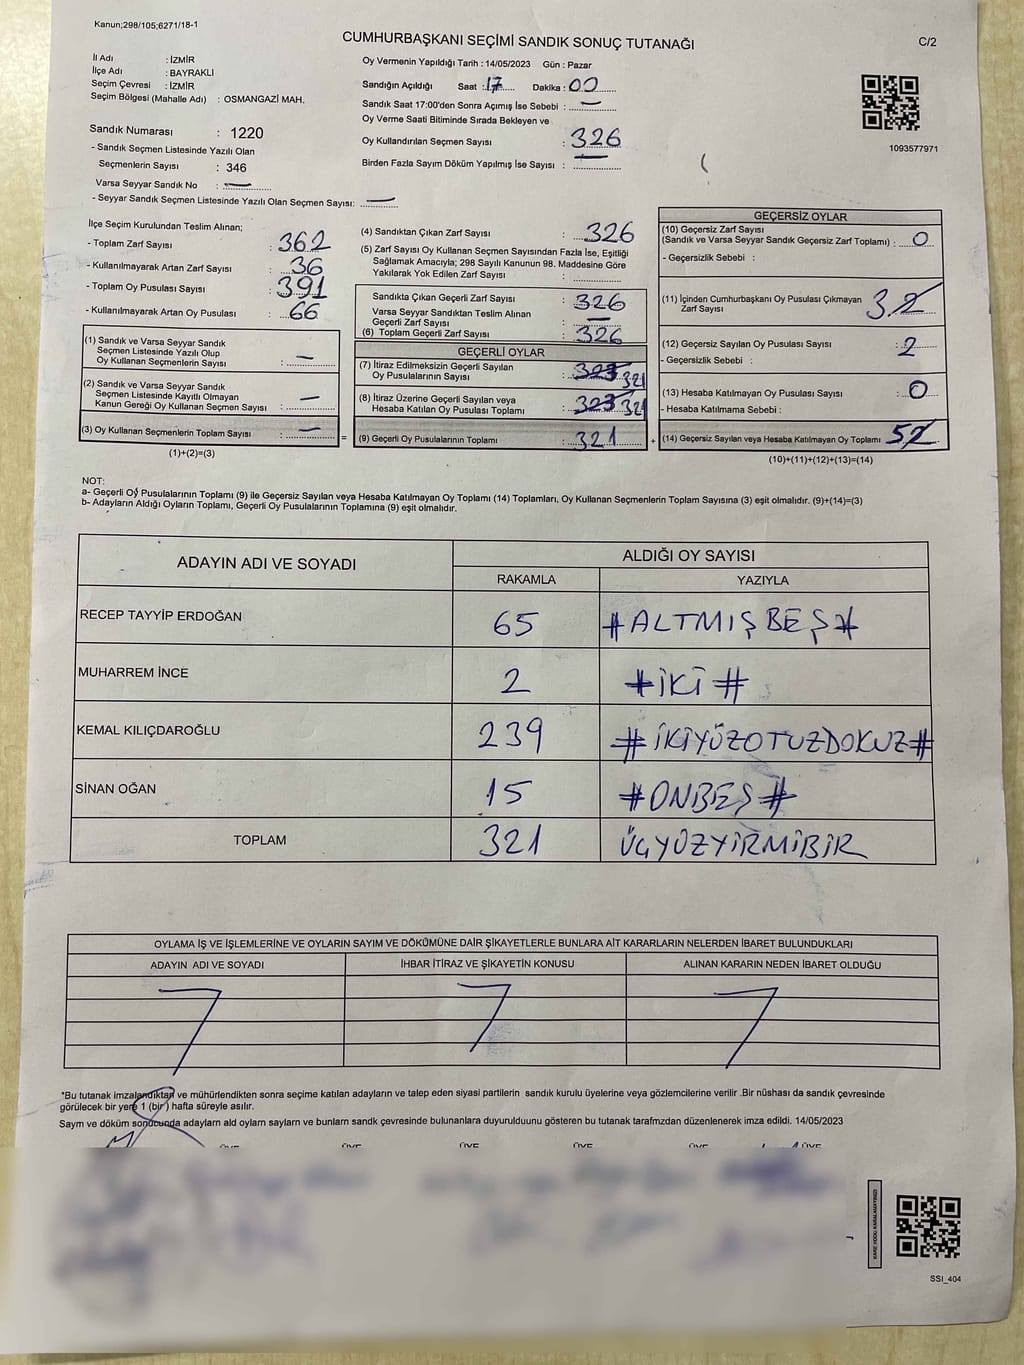 Kanun;298/105;6271/18-1
CUMHURBAŞKANI SEÇİMİ SANDIK SONUÇ TUTANAĞI
C/2
İl Adı : İZMİR
İlçe Adı : BAYRAKLI
Seçim Çevresi : İZMİR
Seçim Bölgesi (Mahalle Adı) : OSMANGAZİ MAH.
Sandık Numarası : 1220
- Sandık Seçmen Listesinde Yazılı Olan
Seçmenlerin Sayısı : 346
Varsa Seyyar Sandık No : —
- Seyyar Sandık Seçmen Listesinde Yazılı Olan Seçmen Sayısı: —
Oy Vermenin Yapıldığı Tarih : 14/05/2023 Gün : Pazar
Sandığın Açıldığı Saat : 17 Dakika : 00
Sandık Saat 17:00'den Sonra Açımış İse Sebebi : —
Oy Verme Saati Bitiminde Sırada Bekleyen ve
Oy Kullandırılan Seçmen Sayısı : 326
Birden Fazla Sayım Döküm Yapılmış İse Sayısı : —
1093577971
İlçe Seçim Kurulundan Teslim Alınan;
- Toplam Zarf Sayısı : 362
- Kullanılmayarak Artan Zarf Sayısı : 36
- Toplam Oy Pusulası Sayısı : 391
- Kullanılmayarak Artan Oy Pusulası : 66
(1) Sandık ve Varsa Seyyar Sandık
Seçmen Listesinde Yazılı Olup
Oy Kullanan Seçmenlerin Sayısı : —
(2) Sandık ve Varsa Seyyar Sandık
Seçmen Listesinde Kayıtlı Olmayan
Kanun Gereği Oy Kullanan Seçmen Sayısı : —
(3) Oy Kullanan Seçmenlerin Toplam Sayısı : —
(1)+(2)=(3)
=
(4) Sandıktan Çıkan Zarf Sayısı : 326
(5) Zarf Sayısı Oy Kullanan Seçmen Sayısından Fazla İse, Eşitliği
Sağlamak Amacıyla; 298 Sayılı Kanunun 98. Maddesine Göre
Yakılarak Yok Edilen Zarf Sayısı :
Sandıkta Çıkan Geçerli Zarf Sayısı : 326
Varsa Seyyar Sandıktan Teslim Alınan
Geçerli Zarf Sayısı : —
(6) Toplam Geçerli Zarf Sayısı : 326
GEÇERLİ OYLAR
(7) İtiraz Edilmeksizin Geçerli Sayılan
Oy Pusulalarının Sayısı : 323 321
(8) İtiraz Üzerine Geçerli Sayılan veya
Hesaba Katılan Oy Pusulası Toplamı : 323 321
(9) Geçerli Oy Pusulalarının Toplamı : 321
+
GEÇERSİZ OYLAR
(10) Geçersiz Zarf Sayısı
(Sandık ve Varsa Seyyar Sandık Geçersiz Zarf Toplamı) : 0
- Geçersizlik Sebebi :
(11) İçinden Cumhurbaşkanı Oy Pusulası Çıkmayan
Zarf Sayısı : 3
(12) Geçersiz Sayılan Oy Pusulası Sayısı : 2
- Geçersizlik Sebebi :
(13) Hesaba Katılmayan Oy Pusulası Sayısı : 0
- Hesaba Katılmama Sebebi :
(14) Geçersiz Sayılan veya Hesaba Katılmayan Oy Toplamı 5
(10)+(11)+(12)+(13)=(14)
NOT:
a- Geçerli Oy Pusulalarının Toplamı (9) ile Geçersiz Sayılan veya Hesaba Katılmayan Oy Toplamı (14) Toplamları, Oy Kullanan Seçmenlerin Toplam Sayısına (3) eşit olmalıdır. (9)+(14)=(3)
b- Adayların Aldığı Oyların Toplamı, Geçerli Oy Pusulalarının Toplamına (9) eşit olmalıdır.
ADAYIN ADI VE SOYADI
ALDIĞI OY SAYISI
RAKAMLA YAZIYLA
RECEP TAYYİP ERDOĞAN 65 #ALTMIŞBEŞ#
MUHARREM İNCE 2 #İKİ#
KEMAL KILIÇDAROĞLU 239 #İKİYÜZOTUZDOKUZ#
SİNAN OĞAN 15 #ONBEŞ#
TOPLAM 321 ÜÇYÜZYİRMİBİR
OYLAMA İŞ VE İŞLEMLERİNE VE OYLARIN SAYIM VE DÖKÜMÜNE DAİR ŞİKAYETLERLE BUNLARA AİT KARARLARIN NELERDEN İBARET BULUNDUKLARI
ADAYIN ADI VE SOYADI İHBAR İTİRAZ VE ŞİKAYETİN KONUSU ALINAN KARARIN NEDEN İBARET OLDUĞU
*Bu tutanak imzalandıktan ve mühürlendikten sonra seçime katılan adayların ve talep eden siyasi partilerin sandık kurulu üyelerine veya gözlemcilerine verilir .Bir nüshası da sandık çevresinde
görülecek bir yere 1 (bir) hafta süreyle asılır.
Saym ve döküm sonucunda adayların ald oylarn saylarn ve bunlarn sandk çevresinde bulunanlara duyurulduunu gösteren bu tutanak tarafmzdan düzenlenerek imza edildi. 14/05/2023
ÜYE ÜYE ÜYE ÜYE ÜYE ÜYE
KARE KODU KARALAMAYINIZ!
SSI_404